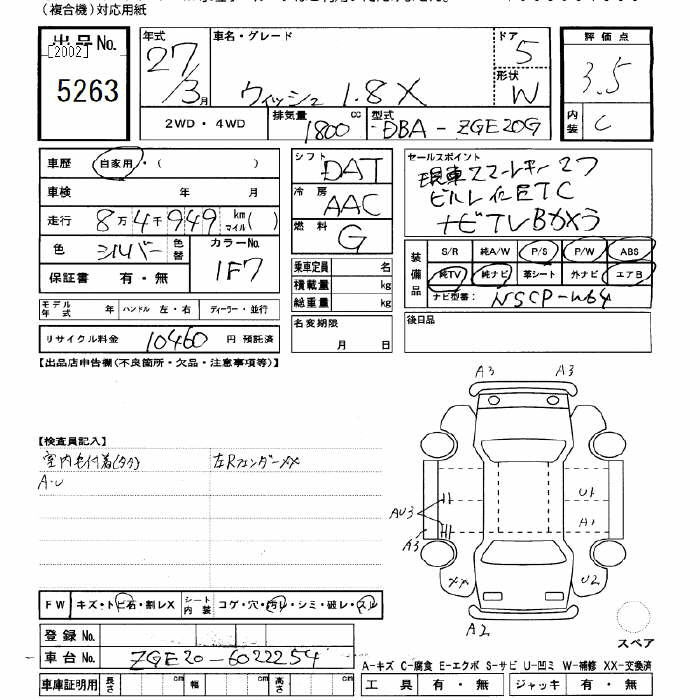 (複合機)対応用紙
出品No.
[2002]
5263
年式 27/3月
車名・グレード
ウィッシュ 1.8X
ドア 5
形状 W
評価点
3.5
内装 C
2WD・4WD
排気量 1800 cc
型式 DBA-ZGE20G
車歴 自家用・( )
車検 年 月
走行 8万4千949 km マイル( )
色 シルバー 色替 カラーNo. 1F7
保証書 有・無
モデル年式 年 ハンドル 左・右 ディーラー・並行
リサイクル料金 10460 円 預託済
シフト DAT
冷房 AAC
燃料 G
乗車定員 名
積載量 kg
総重量 kg
名変期限
月 日
セールスポイント
現車スマートキー2ケ
ビルトインETC
ナビTVBカメラ
装備品
S/R 純A/W P/S P/W ABS
純TV 純ナビ 革シート 外ナビ エアB
ナビ型番: NSCP-W64
後日品
【出品店申告欄(不良箇所・欠品・注意事項等)】
【検査員記入】
左RフェンダーXX
A・U
A3 A3
U1
AU3
A1
A3
XX
U2
A2
スペア
FW キズ・トビ石・割レX シート内装 コゲ・穴・汚レ・シミ・破レ・スレ
登録No.
車台No. ZGE20-6022254
車庫証明用 長さ cm 幅 cm 高さ cm
A-キズ C-腐食 E-エクボ S-サビ U-凹ミ W-補修 XX-交換済
工具 有・無 ジャッキ 有・無